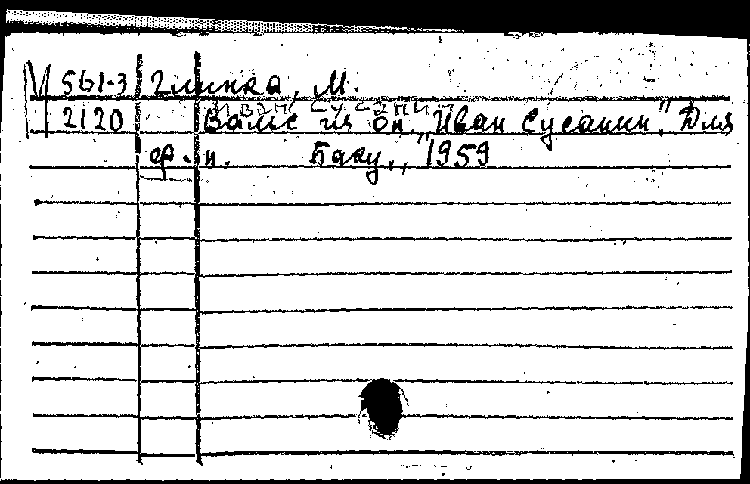 М 561-3 Глинка, М.
2120 Вальс из оп. "Иван Сусанин". Для
ф.-п. Баку, 1959